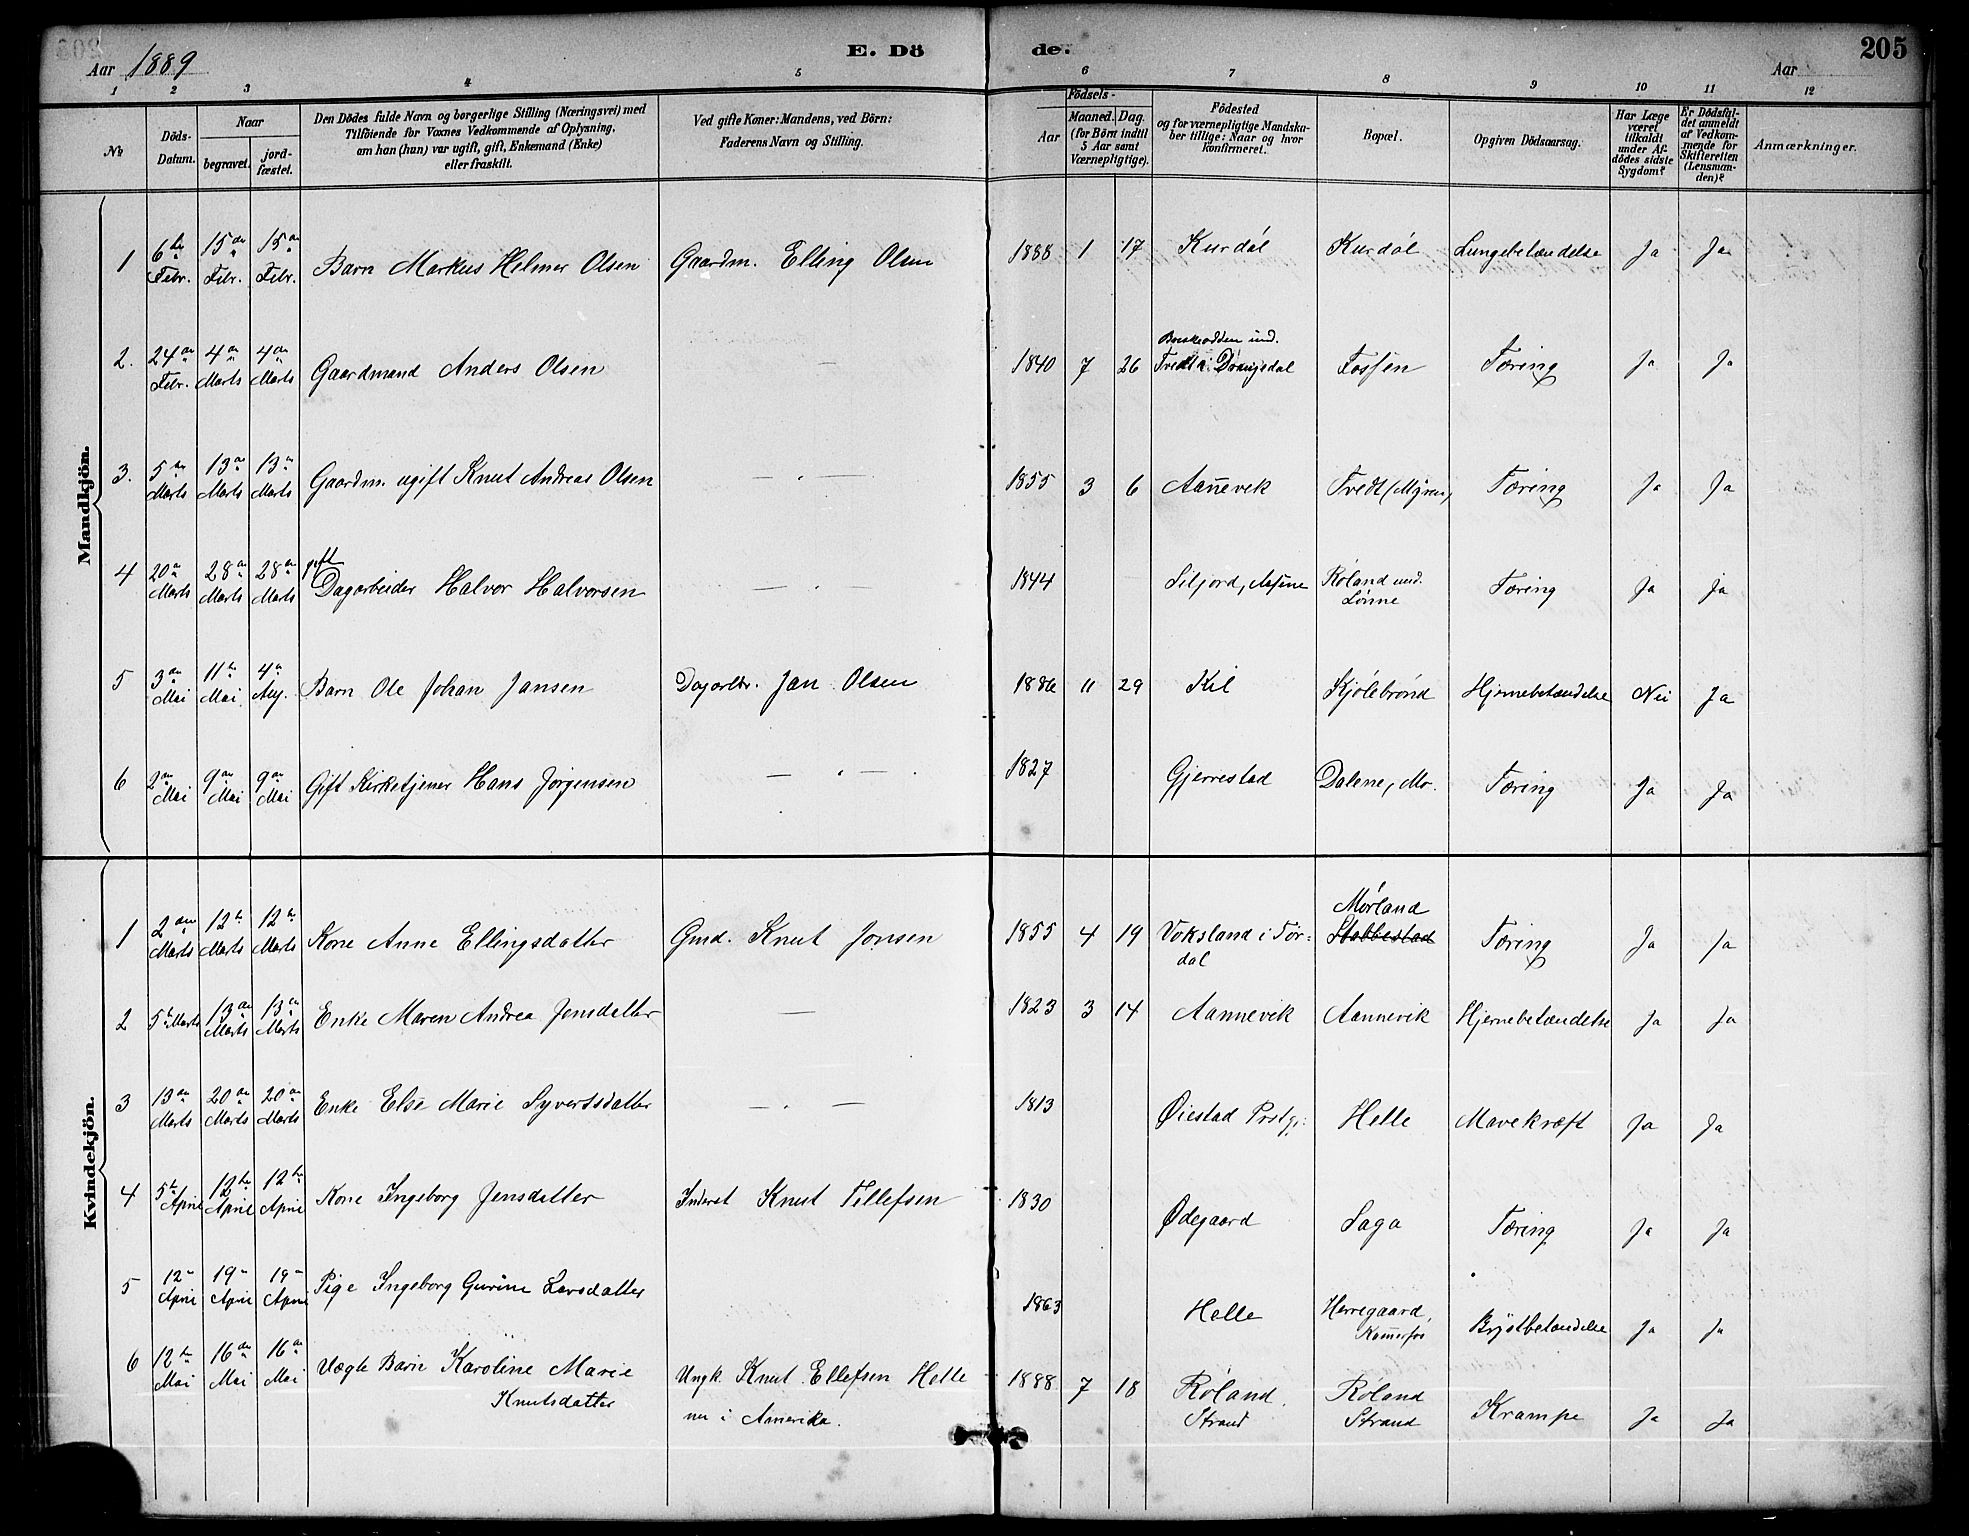 Aar 1889
E. Dö
de.
Aar
205
1 2 3 4 5 6 7 8 9 10 11 12
№
Döds-Datum.
Naar
begravet.
jordfæstet.
Den Dödes fulde Navn og borgerlige Stilling (Næringsvei) med
Tilföiende for Voxnes Vedkommende af Oplysning,
om han (hun) var ugift, gift, Enkemand (Enke)
eller fraskilt.
Ved gifte Koner: Mandens, ved Börn:
Faderens Navn og Stilling.
Födsels-
Aar
Maaned. Dag.
(for Börn indtil
5 Aar samt
Værnepligtige).
Födested
og for værnepligtige Mandska-
ber tillige: Naar og hvor
konfirmeret.
Bopæl.
Opgiven Dödsaarsag.
Har Læge
været
tilkaldt
under Af-
dödes sidste
Sygdom?
Er Dödsfal-
det anmeldt
af Vedkom-
mende for
Skifteretten
(Lensman-
den)?
Anmærkninger.
Mandkjön.
1 6te Febr. 15de Febr. 15de Febr. Barn Markus Helmer Olsen Gaardm. Elling Olsen 1888 1 17 Kurdøl Kurdøl Lungebetændelse Ja Ja
2. 24de Febr. 4de Marts 4de Marts Gaardmand Anders Olsen — 1840 7 26 und. Tvedt i Drangedal Fossen Tæring Ja Ja
3. 5te Marts 13de Marts 13de Marts Gaardm. ugift Knut Andreas Olsen — " — 1855 3 6 Aanevek Tvedt (Myren) Tæring Ja Ja
4 20de Marts 28de Marts 28de Marts gift Dagarbeider Halvor Halvorsen — " — 1844 Siljord, Røland und. Lønne Tæring Ja Ja
5 3de Mai 11te Mai 4de Aug. Barn Ole Johan Jansen Dagarbr. Jan Olsen 1886 11 29 Kil Kjølebrønd Hjernebetændelse Nei Ja
6 2den Mai 9de Mai 9de Mai Gift Kirketjener Hans Jørgensen — " — 1827 Gjerrestad Dalene, Mo. Tæring Ja Ja
Kvindekjön.
1 2den Marts 12te Marts 12te Marts Kone Anne Ellingsdatter Gmd. Knut Jonsen 1855 4 19 Voksland i Tør-dal Mørland Stabbestad Tæring Ja Ja
2 5te Marts 13de Marts 13de Marts Enke Maren Andrea Jensdatter — 1823 3 14 Aannevik Aannevik Hjernebetændelse Ja Ja
3 13de Marts 20de Marts 20de Marts Enke Else Marie Syvertsdatter — " — 1813 Øiestad Prstgj: Helle Mavekræft Ja Ja
4 5te April 12te April 12te April Kone Ingeborg Jensdatter Inderst Knut Tellefsen 1830 Ødegaard Saga Tæring Ja Ja
5 12te April 19de April 19de April Pige Ingeborg Gurine Larsdatter 1863 Helle Herregaard, Kammerfos Brystbetændelse Ja Ja
6 12te Mai 16de Mai 16de Mai Uægte Barn Karoline Marie Knutsdatter Ungk. Knut Ellefsen Helle nu i Amerika. 1888 7 18 Røland Strand Røland Strand Krampe Ja Ja